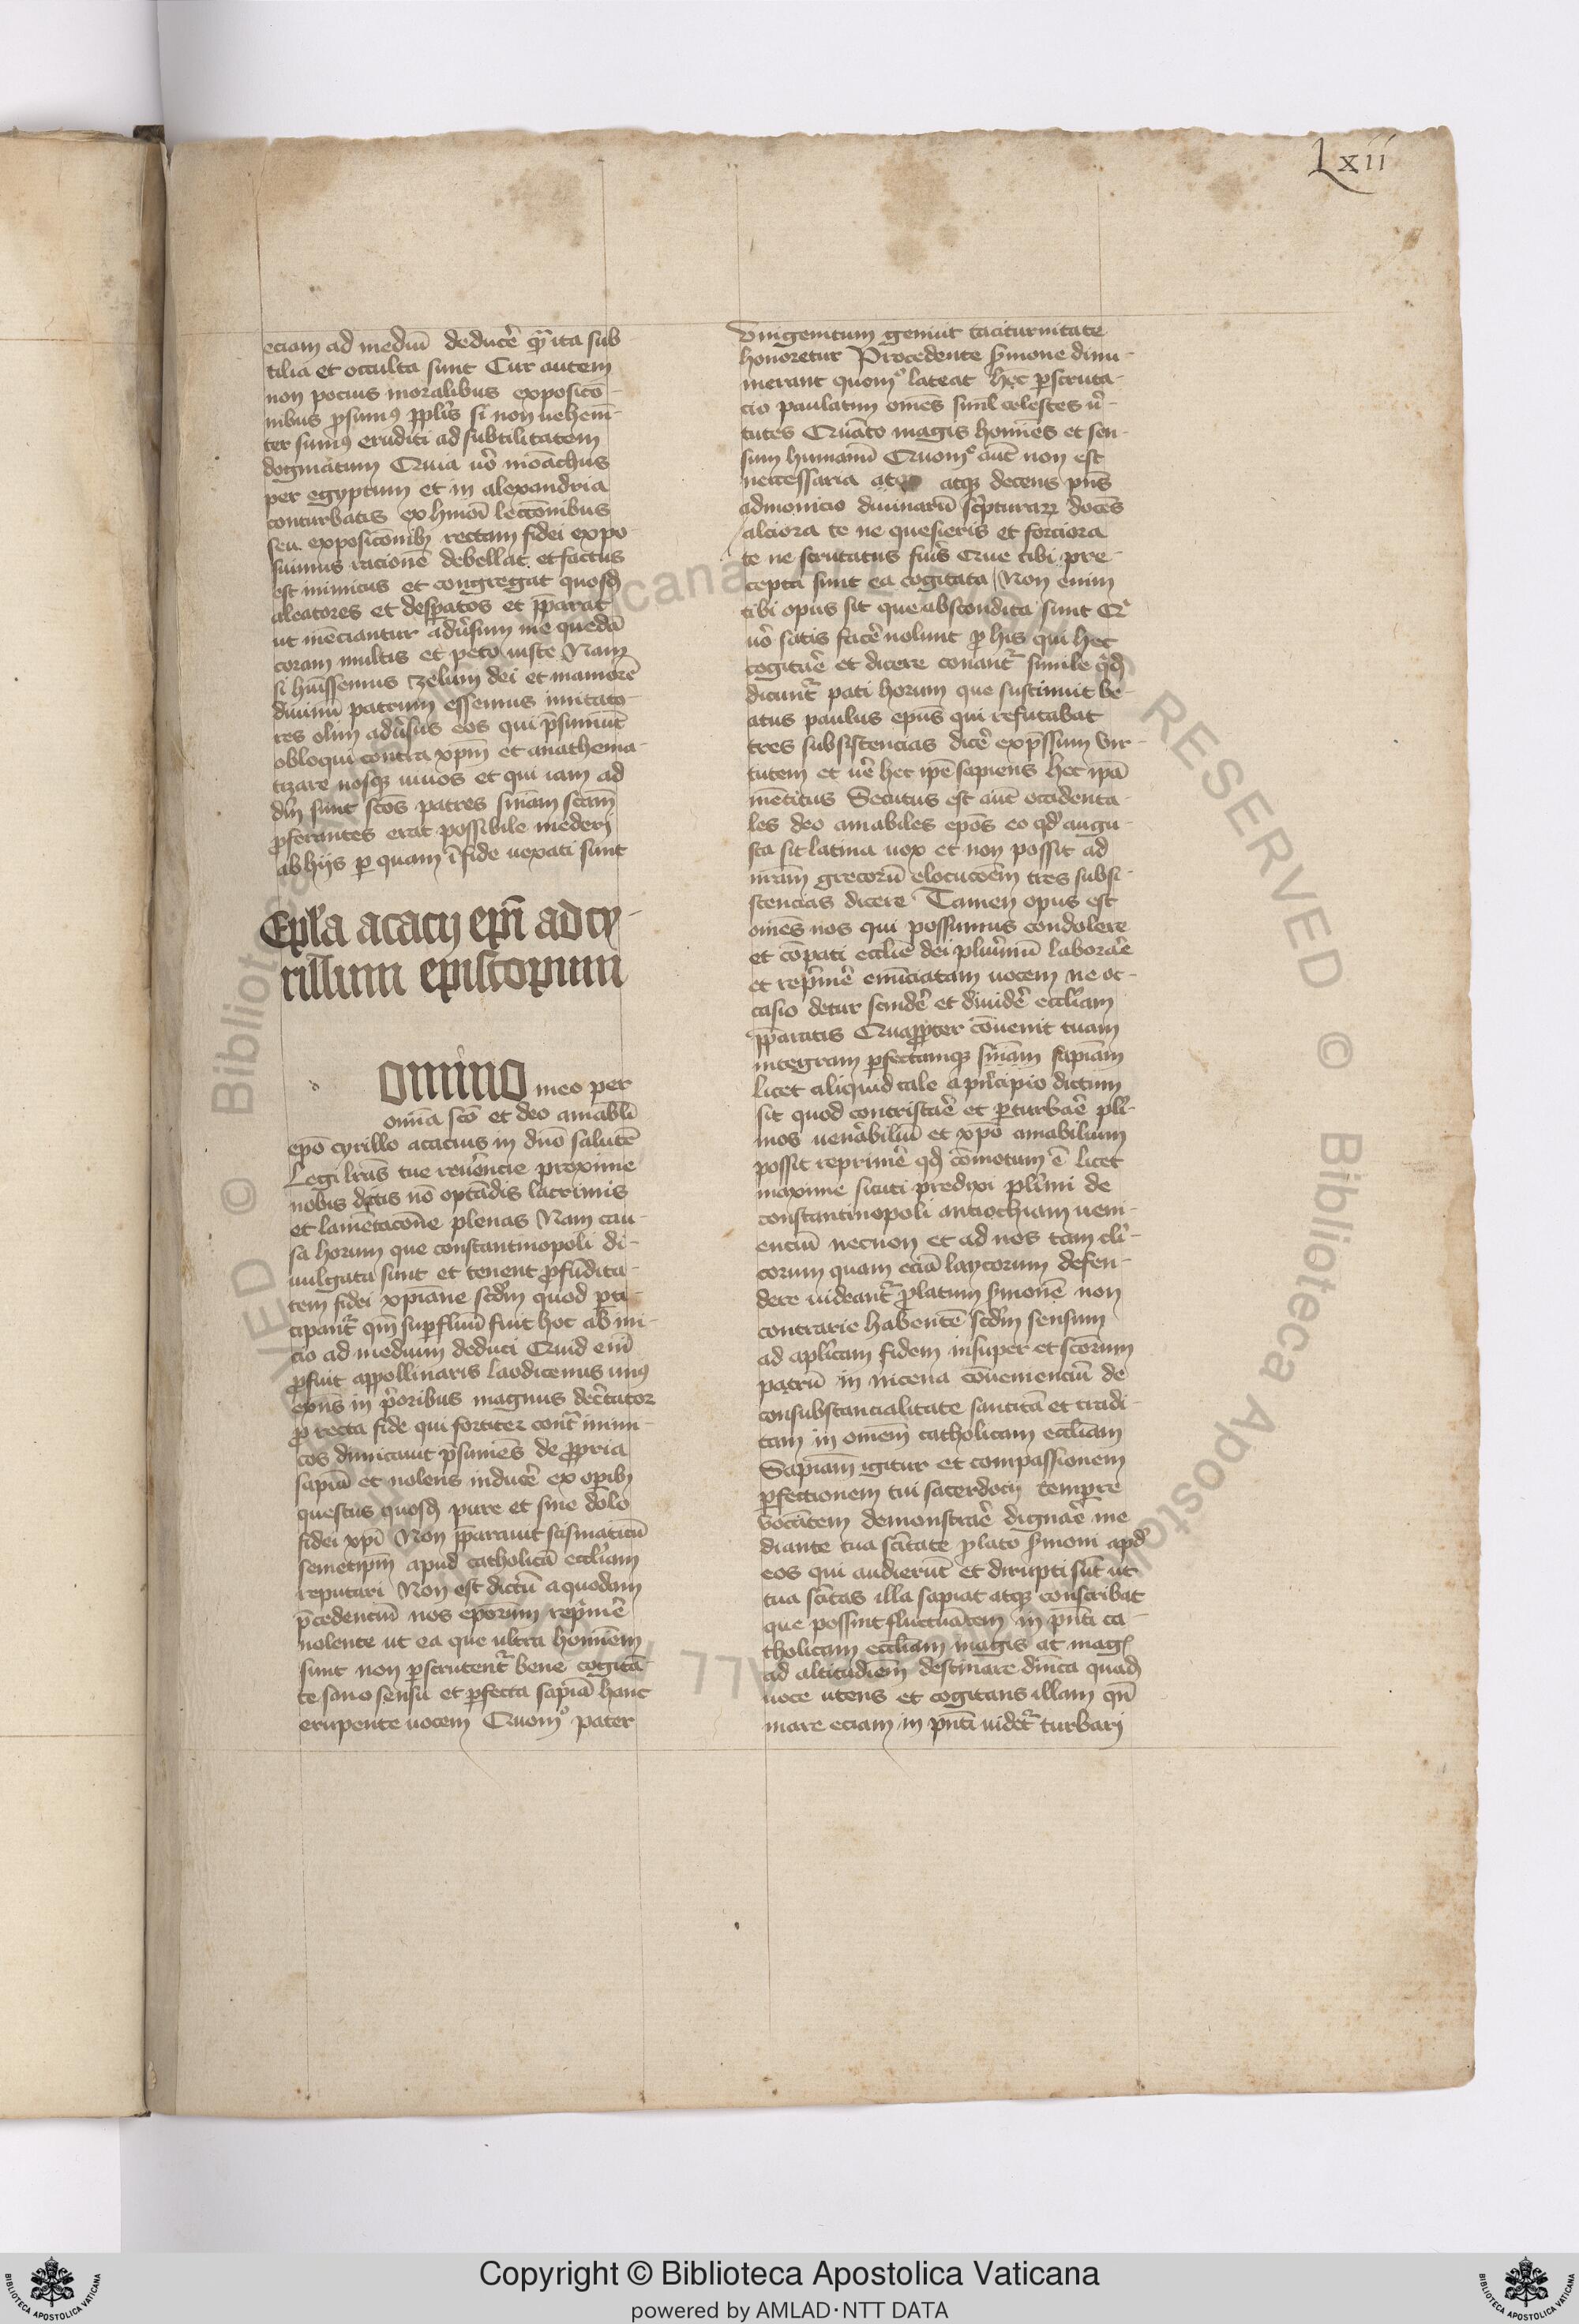 Lxii
eciam ad mediū deducē̄ q̄ ita sub
tilia et occulta sunt Cur autem
non pocius moralibus exposicō-
nibus p̄sum9 ppl̄is si non uehem̄-
ter sum9 eruditi ad subtilitatem
dogmatum Quia uō monachus
per egyptum et in alexandria
conturbatis ex hmōi lecc̄onibus
seu exposicōnib3 rectam fidei expo-
suimus racionē debellat et factus
est inimicus et congregat quosd̄
aleatores et despatos et p̄parat
ut menciantur adūsum me quedā
coram multis et peto iuste Nam
si hūissemus zelum dei et mamorē
diuinū patrum essemus imitato-
res olim adūsus eos qui p̄sumūt
obloqui contra xp̄m et anathema-
tizare nosq3 uiuos et qui iam ad
dm̄ sunt scōs patres sniam scam̄
p̄ferentes erat possibile mederi
ab hijs p quam ī fide uexati sunt
Epl̄a acacij ep̄i ad cy-
rillum episcopum
omino meo per
omīa scō et deo amabl̄i
epō cyrillo acacius in dnō salutē
Legi lrās tue reuēncie proxime
nobis dātis nō optādis lacrimis
et lamētacōne plenas Nam cau-
sa horum que constantinopoli di-
uulgata sunt et tenent p̄fūdita-
tem fidei xp̄iane scdm̄ quod pti-
cipant̄ qm̄ supfluū fuit hoc ab ini-
cio ad medium deduci Quid eni
p̄fuit appollinaris laodicenus un9
epūs in p̄oribus magnus dec̄tator
p̄ recta fide qui fortiter cont̄ inimi-
cos dimicauit p̄sumēs de ppria
sapiā et nolens inducē̄ ex opib3
questus quosd̄ pure et sine dolo
fidei xp̄i Non p̄parauit scismaticū
semetip̄m apud catholicā eccl̄iam
reputari Non est dictū a quodam
p̄cedenciū nos epōrum rep̄mē̄
uolente ut ea que ultra hominem
sunt non pscrutent̄ bene cogita-
te sano sensu et pfecta sapiā hanc
erupente uocem Quomō pater
Vnigenitum genuit taciturnitate
honoretur Procedente sm̄one dinu-
merant quomō lateat hec pscruta-
cio paulatim om̄es simul celestes ū-
tutes Quāto magis homines et sen-
sum humanū Quomō aūt non est
neccessaria atq3 decens p̄ns
admonicio diuinarū scripturar2 docēs
alciora te ne quesieris et forciora
te ne scrutatus fuīs Que tibi pre-
cepta sunt ea cogitata Non enim
tibi opus sit que abscondita sunt Qr
uō satis facē̄ uolunt p̄ his qui hec
cogitāē̄ et dicere conant̄ simile qd̄
dicunt̄ pati horum que sustinuit be-
atus paulus epūs qui refutabat
tres subsistencias dicē̄ exp̄ssum vir-
tutem et uē̄ hec ip̄e sapiens hec ip̄a
mētitus Secutus est aūt occidenta-
les deo amabiles epōs eo qd̄ angu-
sta sit latina uox et non possit ad
nrām grecorū elocucōem tres subsi-
stencias dicere Tamen opus est
omēs nos qui possumus condolere
et cōpati eccl̄ie dei plurimū laborāē̄
et rep̄mē̄ enūciatam uocem ne oc-
casio detur scindē̄ et diuidē̄ eccl̄iam
p̄paratis Quappter cōuenit tuam
integram pfectamq3 sniam sapiam
licet aliquid tale a p̄ncipio dictum
sit quod contristāē̄ et pturbāē̄ pl̄i-
mos uenabiliū et xpō amabilium
possit reprimē̄ qd̄ cōmotum ē licet
maxime sicuti predixi pl̄imi de
constantinopoli antiochiam ueni-
enciū necnon et ad nos tam cl̄i-
corum quam eciā laycorum defen-
dere uideant̄ p̄latum sm̄onē non
contrarie habentē scdm̄ sensum
ad apl̄icam fidem insuper et scōrum
patrū in nicena cōuenienciū de
consubstancialitate sancitā et tradi-
tam in omēm catholicam eccl̄iam
Sapiam igitur et compassionem
pfectionem tui sacerdocij tempere
vocātem demonstrāē̄ dignāē̄ me
diante tua sc̄itate p̄lato sm̄oni apd̄
eos qui audierūt et dirupti sūt ut
tua sc̄itas illa sapiat atq3 conscribat
que possint fluctuātem in p̄nti ca-
tholicam eccl̄iam magis at mag
ad altitudiem destinare dmca quad̄
uoce utens et cogitans illam qn̄
mare eciam in p̄nti uidet̄ turbari
Copyright © Biblioteca Apostolica Vaticana
powered by AMLAD·NTT DATA